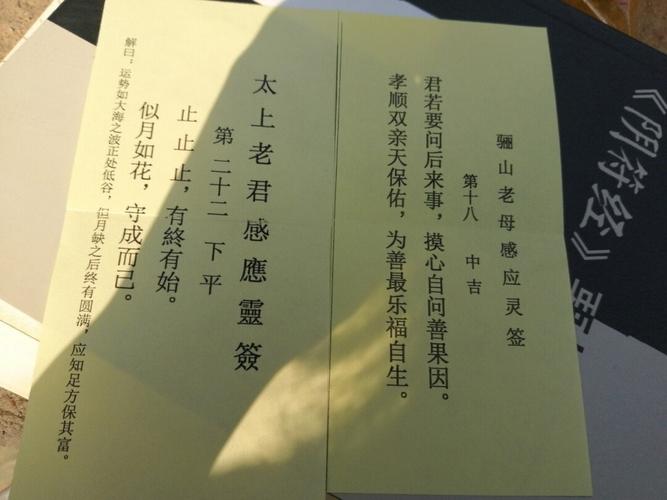 骊山老母感应灵签
第十八 中吉
君若要问后来事，摸心自问善果因。
孝顺双亲天保佑，为善最乐福自生。
太上老君感應靈簽
第二十二 下平
止止止，有終有始。
似月如花，守成而已。
解曰：运势如大海之波正处低谷，但月缺之后终有圆满，应知足方保其富。
《阴符经》